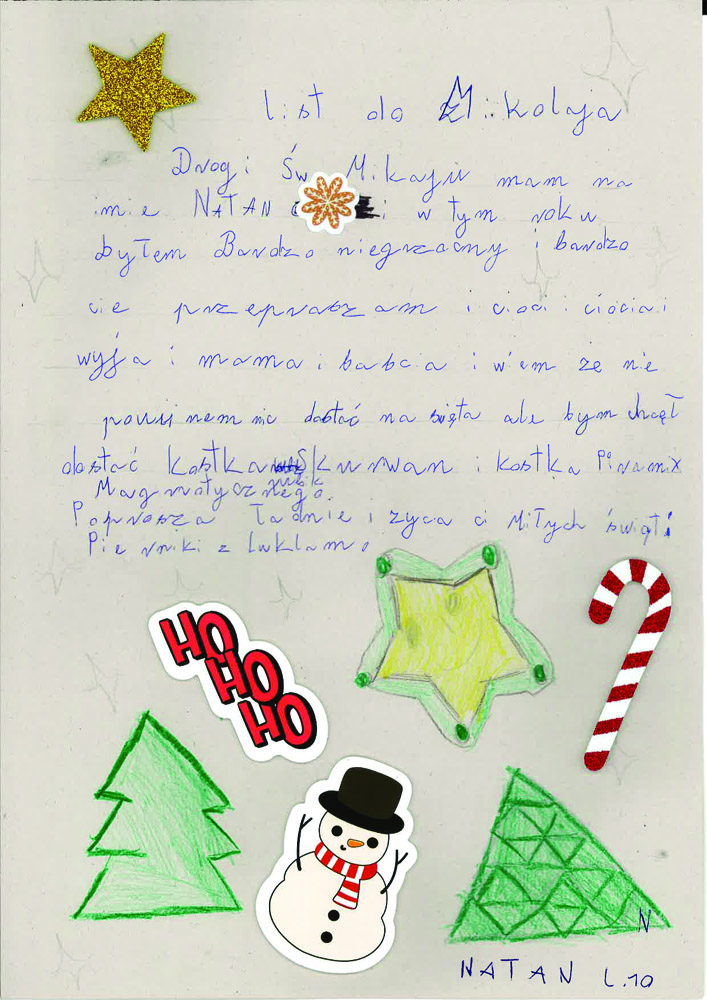 list do Mikolaja
Drogi Św Mikaju mam na
imie NATAN i w tym roku
byłem Bardzo niegrzaczny i bardzo
cie przepraszam i cioci i ciocia i
wyja i mama i babcia i wiem ze nie
powinem nic dostać na święta ale bym chcęł
dostać kostka Skurwan i kostka Piramix
Magnatycznego.
Poprosza Ładnie i zyca ci Miłych świąt i
Pierniki z Luklamo
HO
HO
HO
N
NATAN L.10